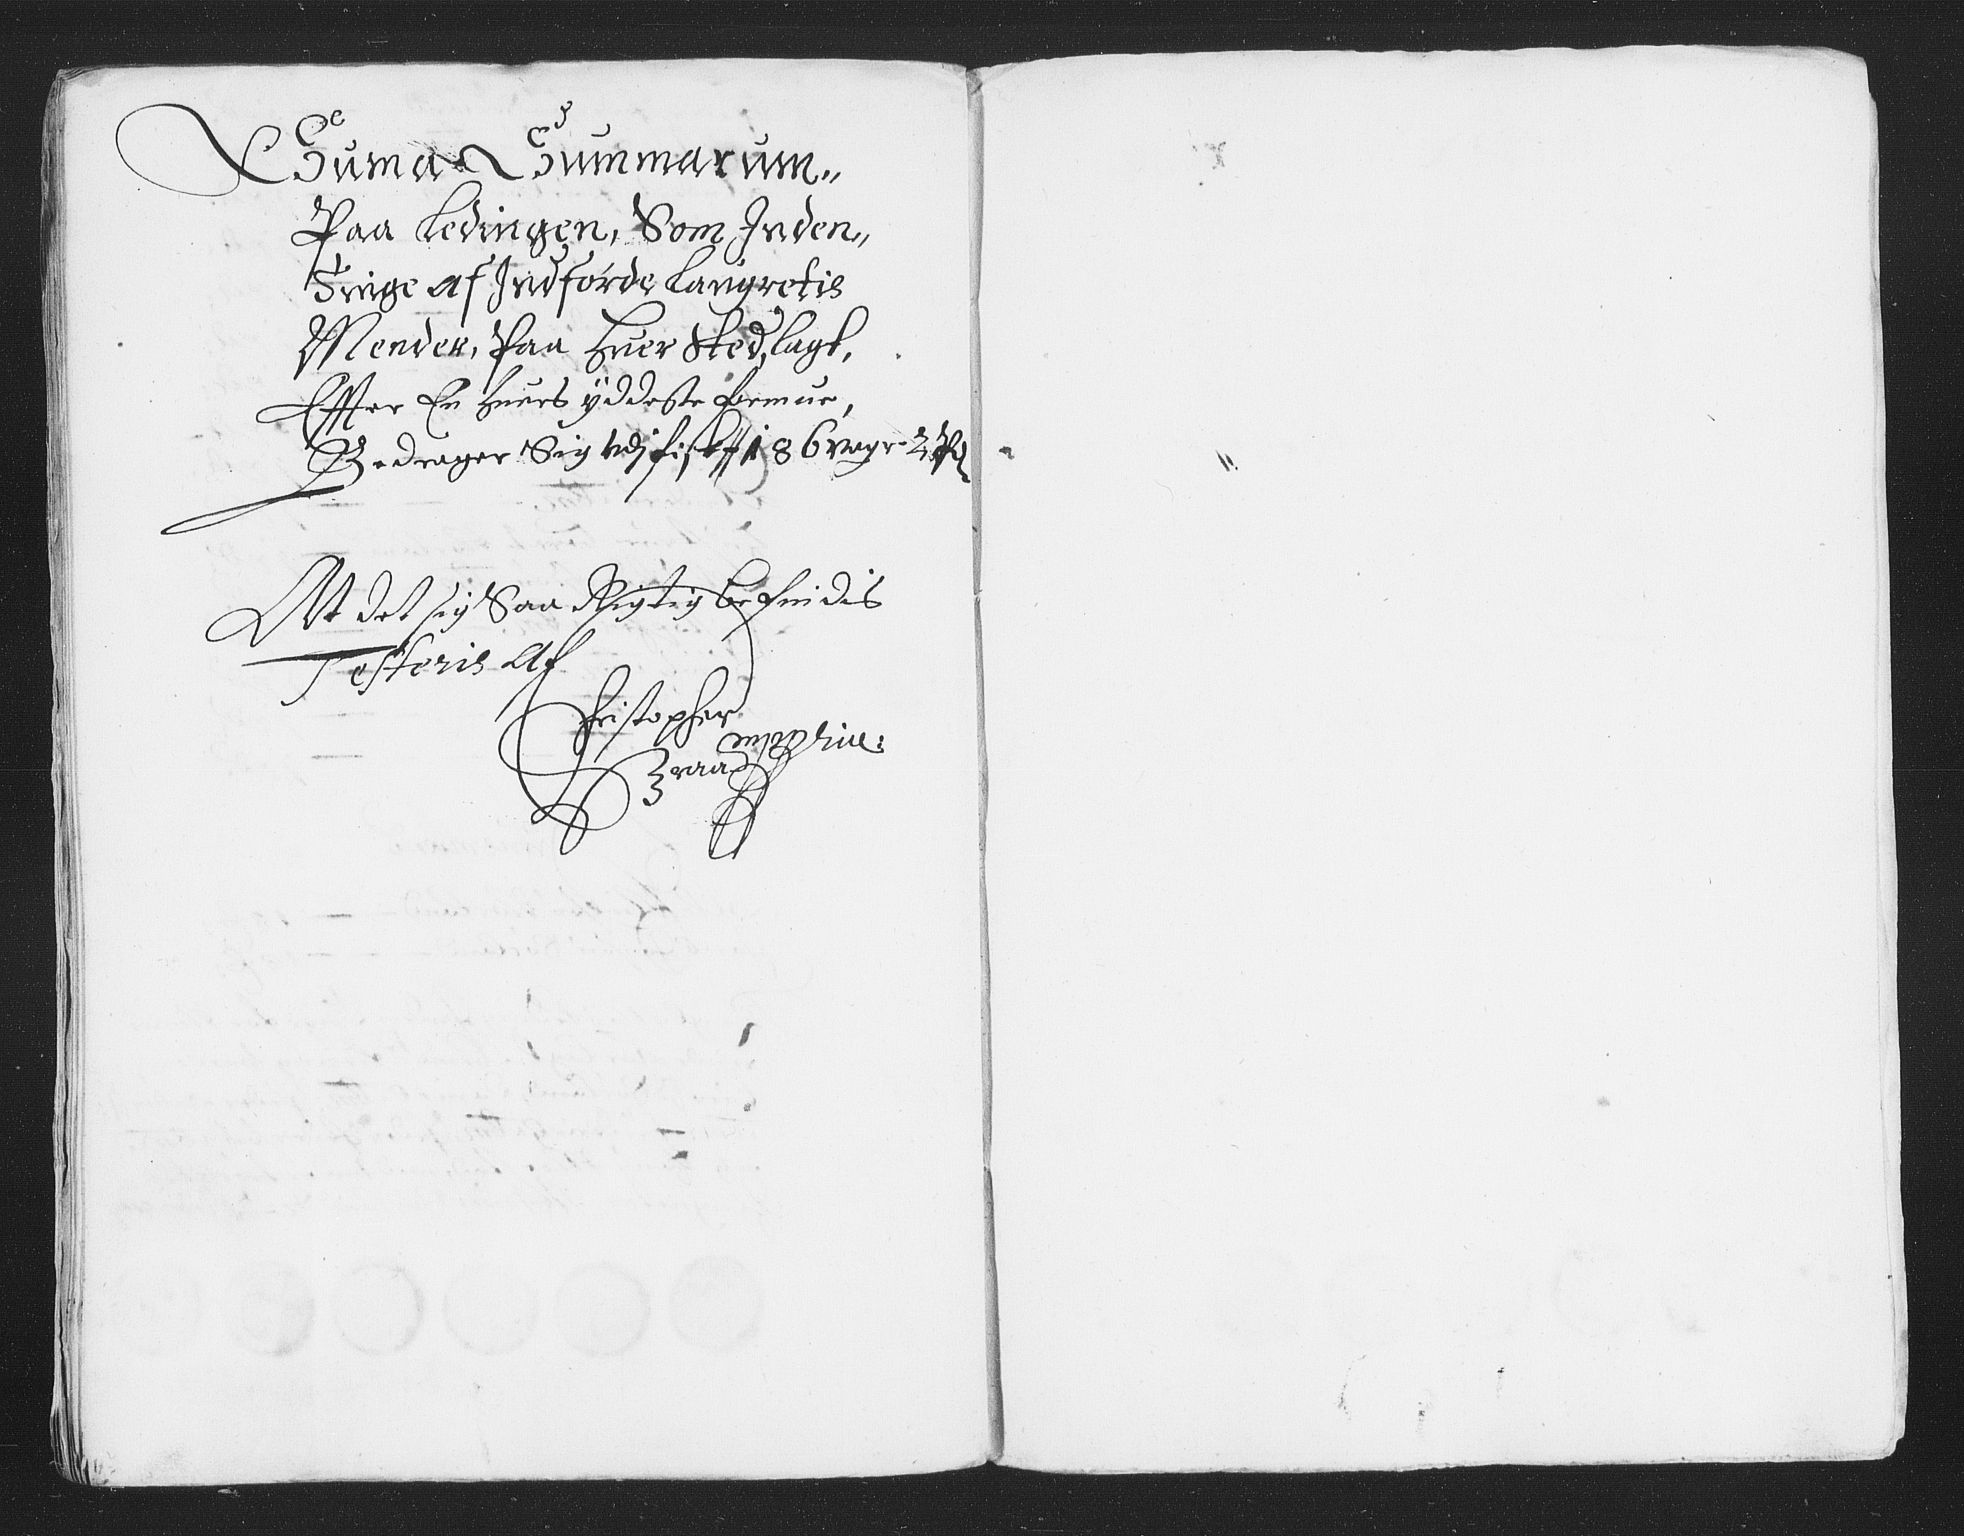 Suma Summarum„
Paa Ledingen, Som Inden„
Tinge af Indførde Laugretis
Mender, Paa huer sted, lagt,
Effter En huers yddeste formue,
Bedrager Sig vdj fisk 186 vogr 2 Pd
At det sig Saa Rigtig befindis
Testeris Af
Christopher
Braad